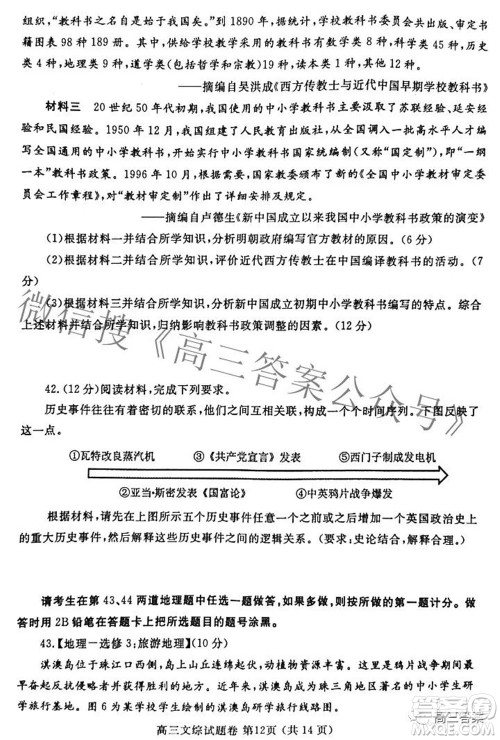 组织，“教科书之名自是始于我国矣。”到 1890 年，据统计，学校教科书委员会共出版、审定书
籍图表 98 种 189 册。其中，供给学校教学采用的教科书有数学 8 种，科学 45 种，历史
类 4 种，地理类 9 种，道学类（包括哲学和宗教）19 种，读本 1 种，其他 12 种。
——摘编自吴洪成《西方传教士与近代中国早期学校教科书》
材料三　20 世纪 50 年代初期，我国使用的中小学教科书主要汲取了苏联经验、延安经
验和民国经验。1950 年 12 月，我国组建了人民教育出版社，从全国调入一批高水平人才编
写全国通用的中小学教科书，并实行中小学教科书国家统编制（又称“国定制”），即“一纲
一本”教科书政策。1996 年 10 月，根据需要，国家教委颁布了新的《全国中小学教材审定委
员会工作章程》，对“教材审定制”作出了详细安排及规定。
——摘编自卢德生《新中国成立以来我国中小学教科书政策的演变》
（1）根据材料一并结合所学知识，分析明朝政府编写官方教材的原因。（6 分）
（2）根据材料二并结合所学知识，评价近代西方传教士在中国编译教科书的活动。（7
分）
（3）根据材料三并结合所学知识，分析新中国成立初期中小学教科书编写的特点。综合
上述材料并结合所学知识，归纳影响教科书政策调整的因素。（12 分）
42.（12 分）阅读材料，完成下列要求。
历史事件往往有着密切的联系，他们之间互相关联，构成一个个时间序列。下图反映了
这一点。
①瓦特改良蒸汽机　③《共产党宣言》发表　⑤西门子制成发电机
②亚当·斯密发表《国富论》　④中英鸦片战争爆发
根据材料，请先在上图所示五个历史事件任意一个之前或之后增加一个英国政治史上
的重大历史事件，然后解释这些历史事件之间的逻辑关系。（要求：史论结合，解释合理。）
请考生在第 43、44 两道地理题中任选一题做答，如果多做，则按所做的第一题计分。做
答时用 2B 铅笔在答题卡上把所选题目的题号涂黑。
43.【地理－选修 3：旅游地理】（10 分）
淇澳岛位于珠江口西侧，岛上山丘连绵起伏，动植物资源丰富，西北部拥有我国面积最
大的红树林。因其独特的地理位置和得天独厚的生态环境，淇澳岛成为珠三角地区中小学生研
学旅行基地。图 6 为某学校学生淇澳岛研学旅行线路图。
高三文综试题卷　第12页（共 14 页）
微信搜《高三答案公众号》
高三答案